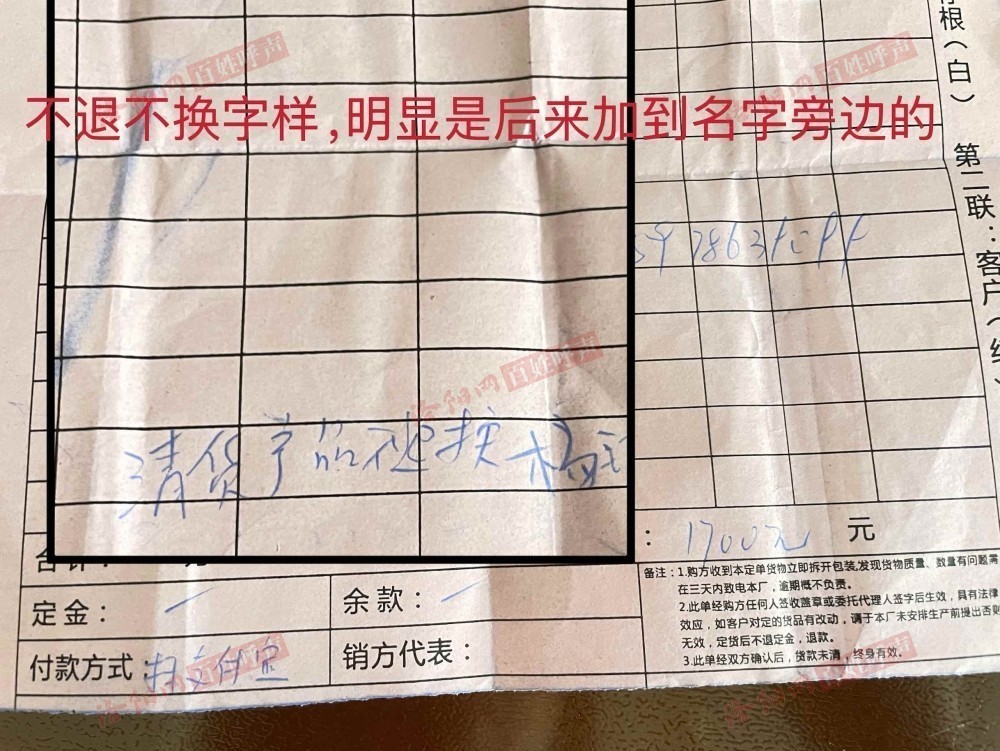 存根（白） 第二联：客户（红、
洛阳网 百姓呼声
不退不换字样,明显是后来加到名字旁边的
洛阳网 百姓呼声
清货产品不退换
合计： 元
： 1700元 元
定金： 一
余款： 一
付款方式：扫支付宝
销方代表：
备注：1.购方收到本定单货物立即拆开包装,发现货物质量、数量有问题需
在三天内致电本厂，逾期概不负责。
2.此单经购方任何人签收盖章或委托代理人签字后生效，具有法律
效应，如客户对定的货品有改动，请于本厂未安排生产前提出否则
无效，定货后不退定金，退款。
3.此单经双方确认后，货款未清，终身有效。